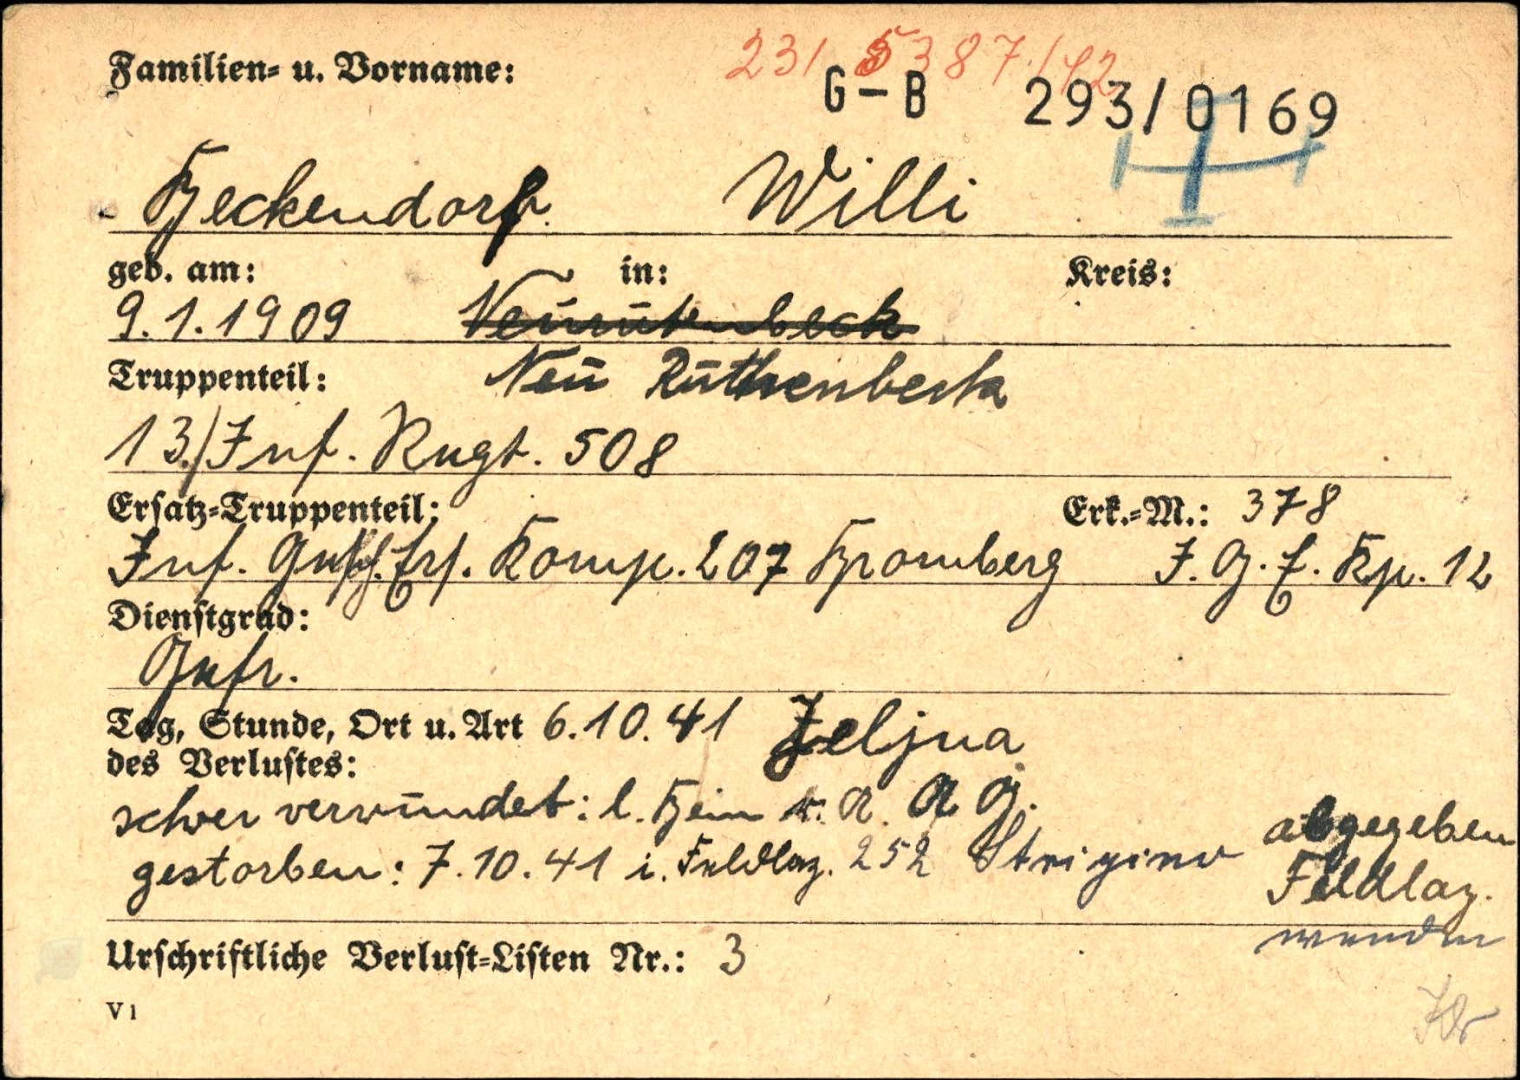 Familien- u. Vorname:
231 5387/42
G-B 293/0169
Heckendorf Willi
geb. am: in: Kreis:
9.1.1909 Neurutenbeck
Truppenteil: Neu Ruthenbeck
13./Inf. Regt. 508
Ersatz-Truppenteil: Erk.-M.: 378
Inf. Gesch. Ers. Komp. 207 Bromberg J. G. E. Kp. 12
Dienstgrad:
Gefr.
Tag, Stunde, Ort u. Art 6.10.41 Jeljna
des Verlustes:
schwer verwundet: l. Bein A. G.
gestorben: 7.10.41 i. Feldlaz. 252 Strigino
abgegeben
Feldlaz.
wenden
Urschriftliche Verlust-Listen Nr.: 3
V 1